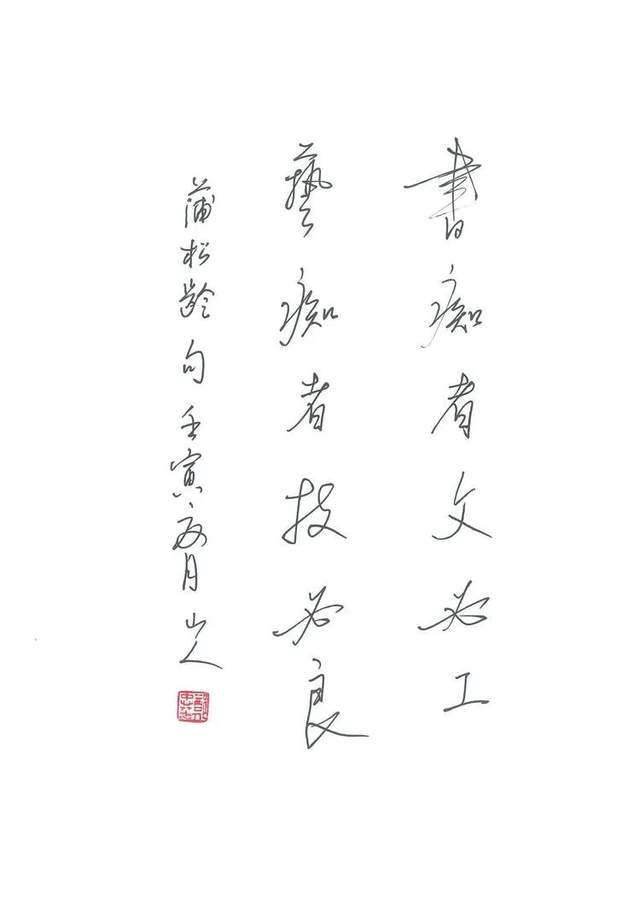 書痴者文必工
藝痴者技必良
蒲松龄句壬寅夏月山人